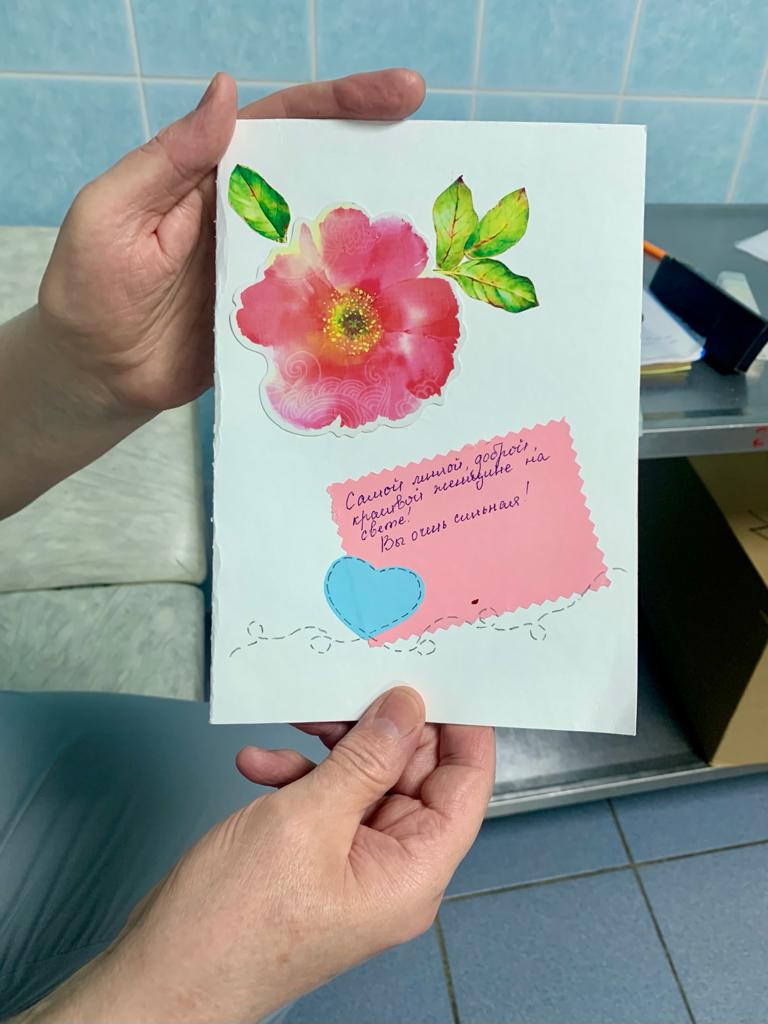 Самой милой, доброй,
красивой женщине на
свете!
Вы очень сильная!